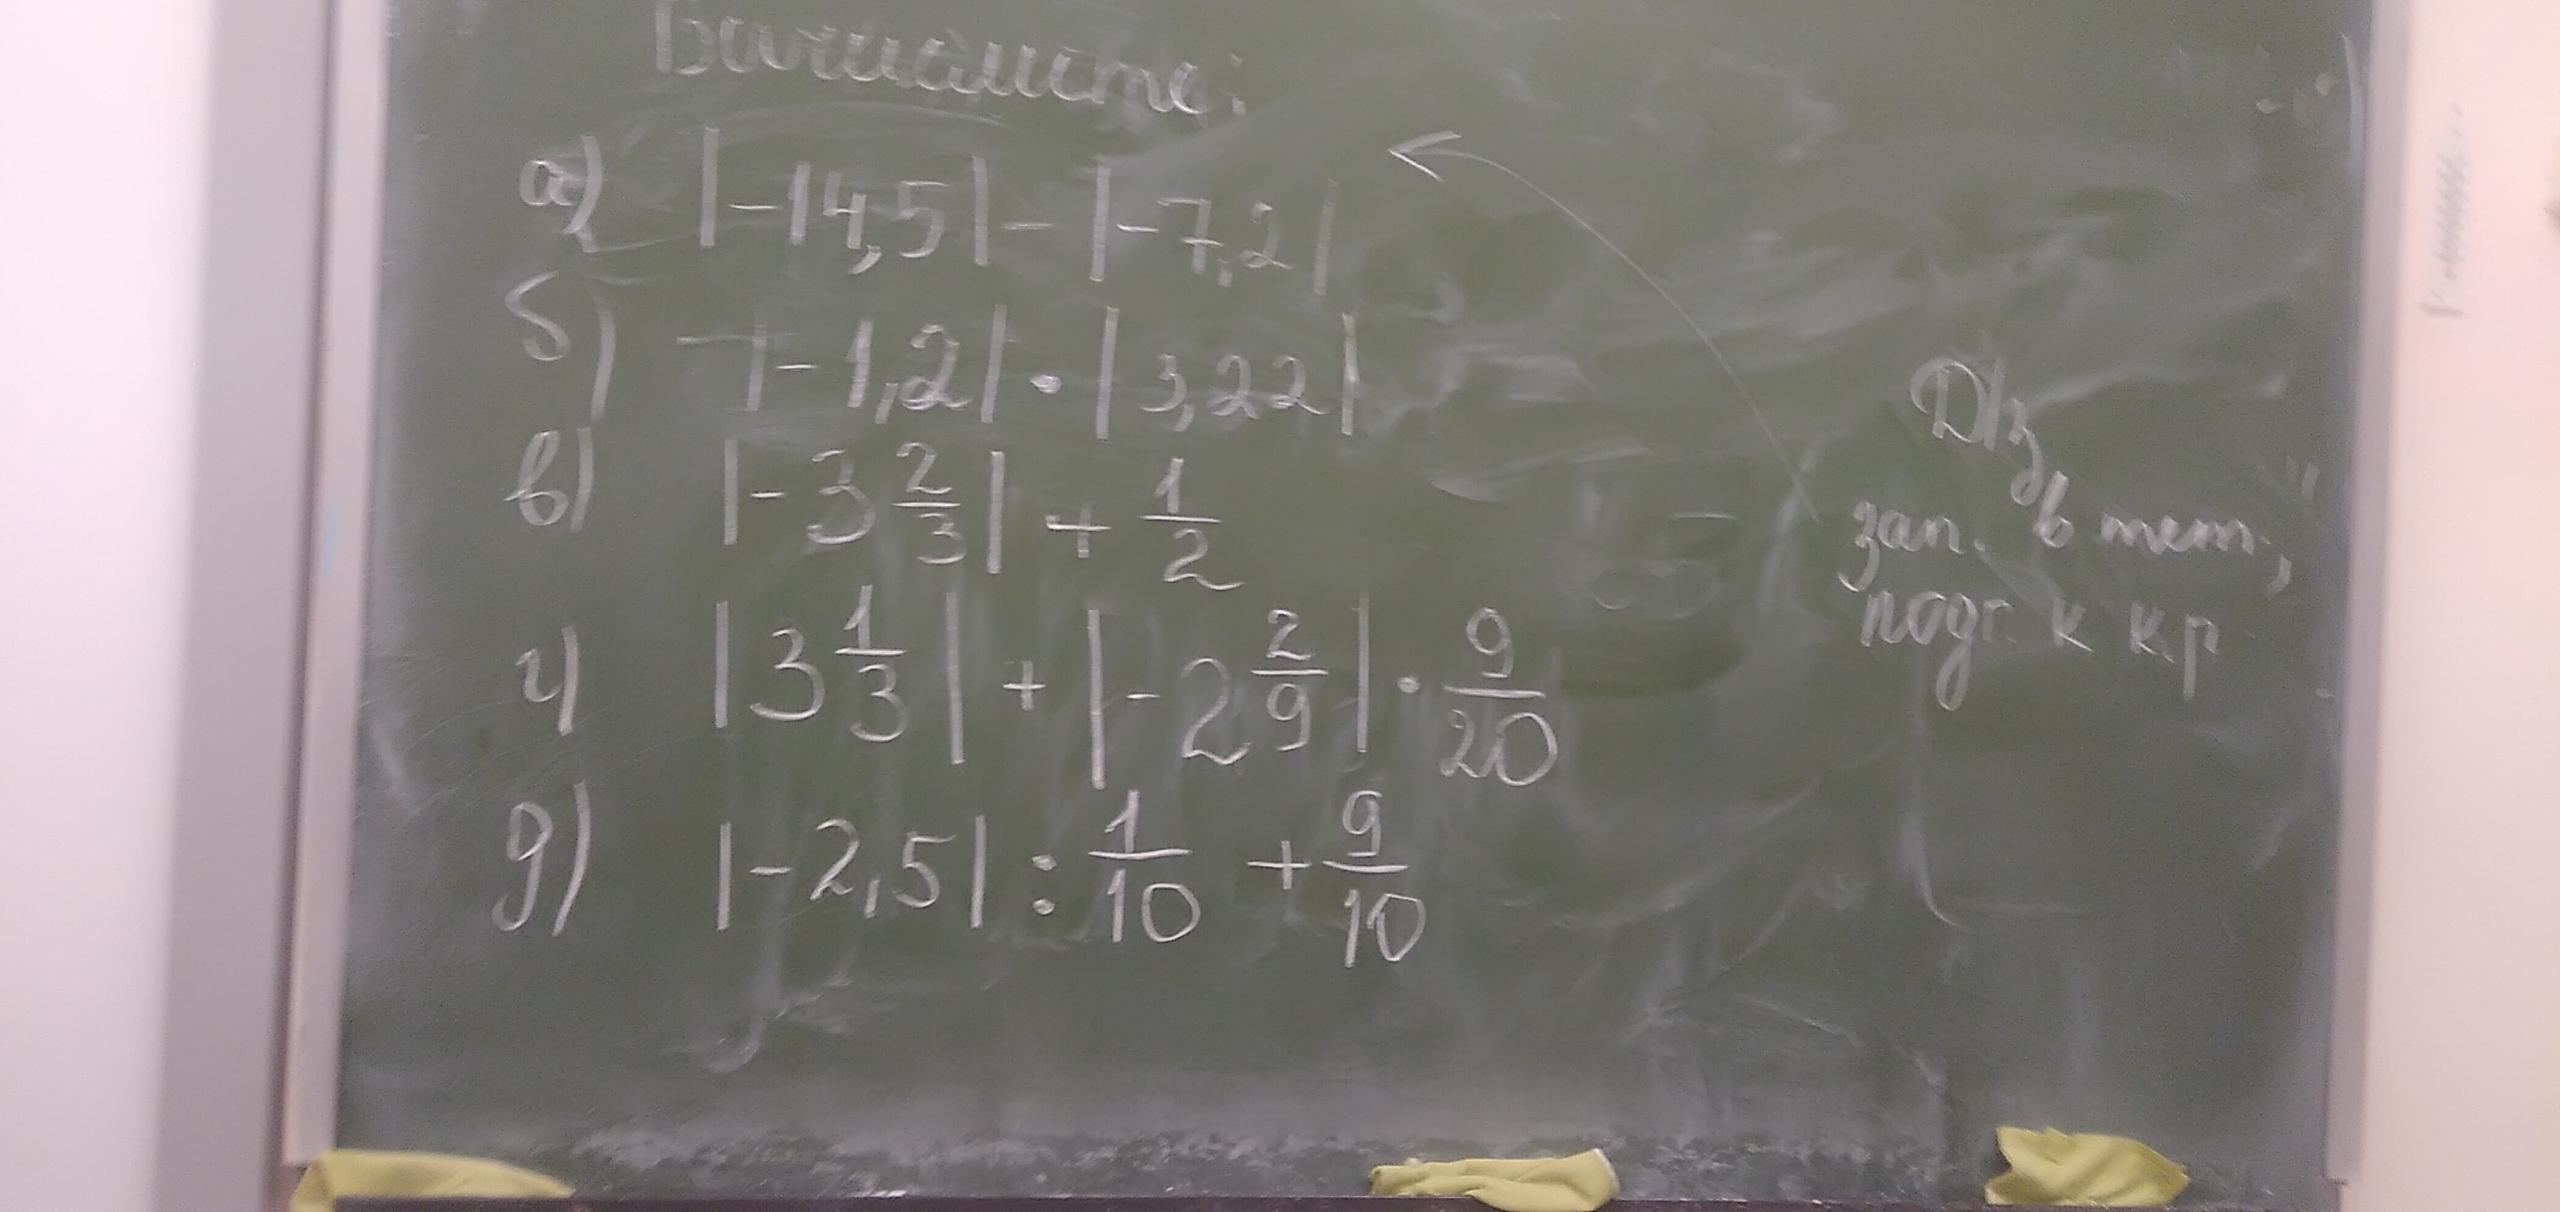 Вычислите:
а) |-14,5| - |-7,2|
б) -|-1,2| · |3,22|
в) |-3 2/3| + 1/2
г) |3 1/3| + |-2 2/9| · 9/20
д) |-2,5| : 1/10 + 9/10
Д/з
зап. в тет.,
подг. к к.р.